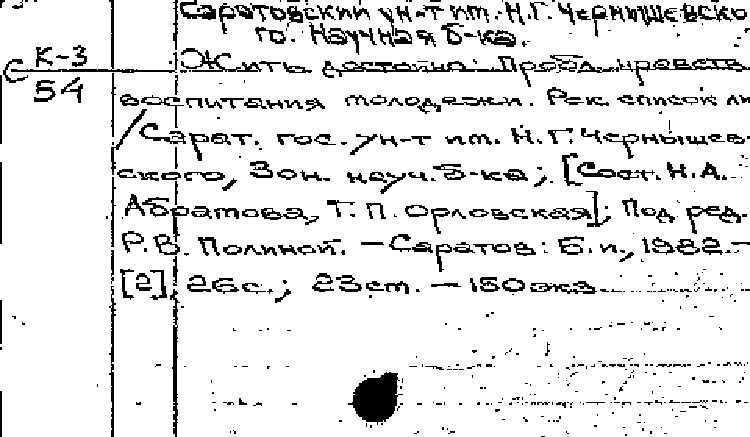 Саратовский ун-т им. Н.Г. Чернышевско
го. Научная б-ка.
С К-3 Жить достойно: Пробл. нравств.
54 воспитания молодежи. Рек. список ли
/Сарат. гос. ун-т им. Н.Г. Чернышев-
ского, Зон. науч. б-ка; [Сост. Н.А.
Абратова, Т.П. Орловская]; Под ред.
Р.В. Полиной. – Саратов: Б.и., 1982. –
[2], 26с.; 23 см. – 150 экз.